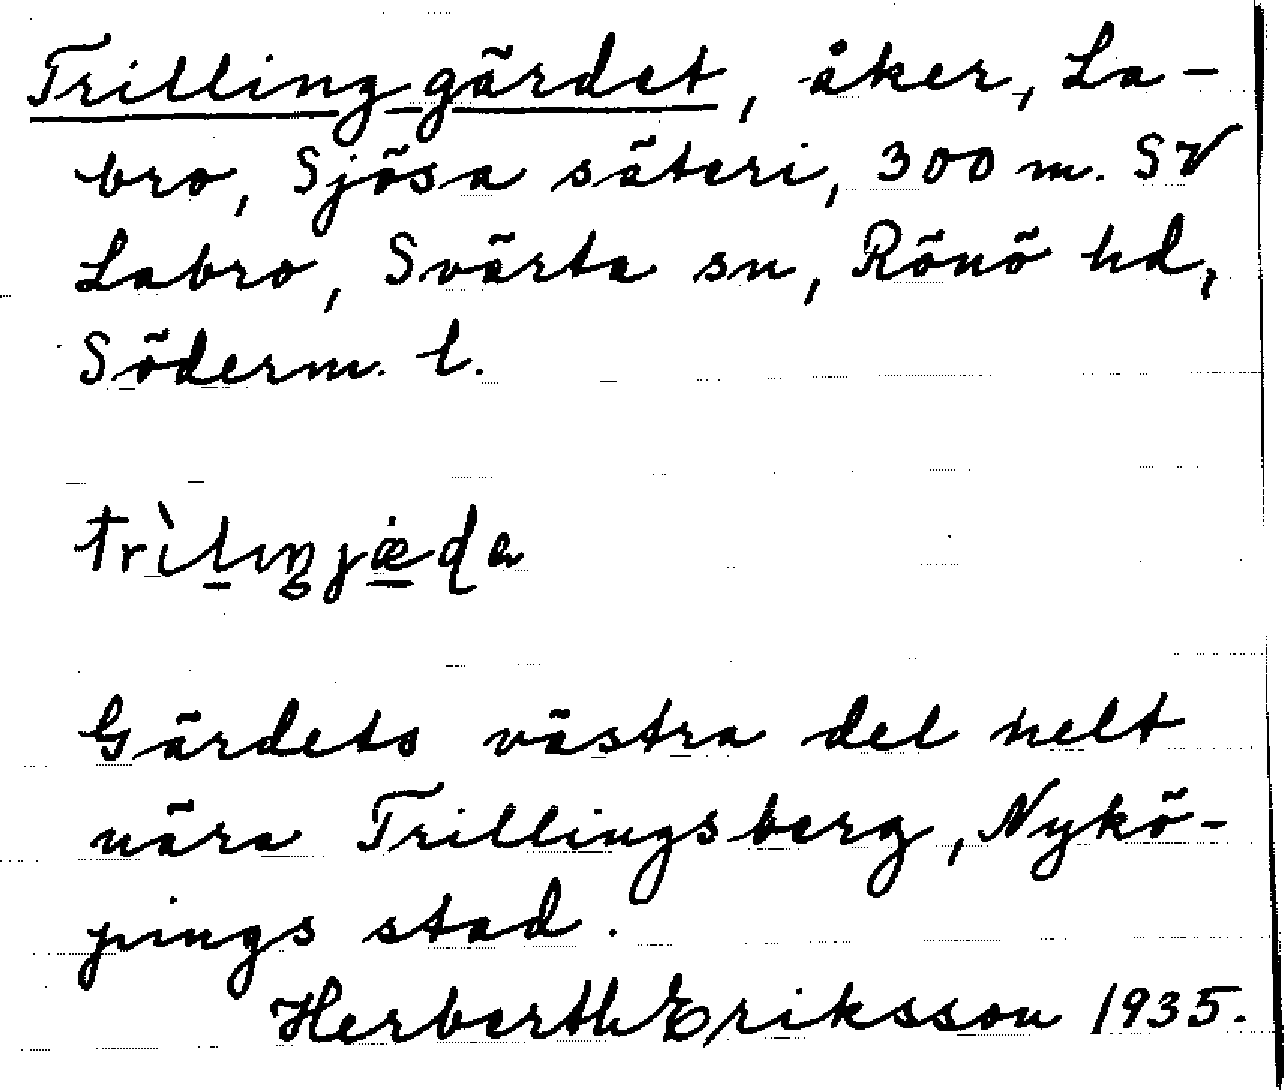 Trillinggärdet, åker, La-
bro, Sjösa säteri, 300 m. SV
Labro, Svärta sn, Rönö hd,
Söderm. l.
Gärdets västra del helt
nära Trillingsberg, Nykö-
pings stad.
Herberth Eriksson 1935.